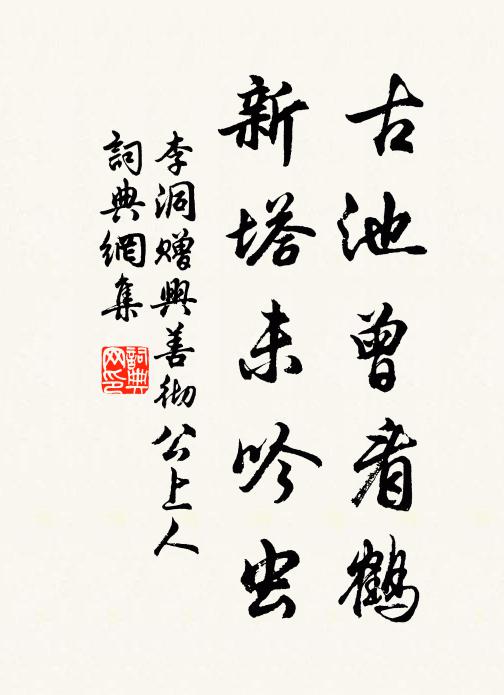 古池曾看鶴
新塔未吟虫
李洞贈興善彻公上人
詞典網集
詞典网印